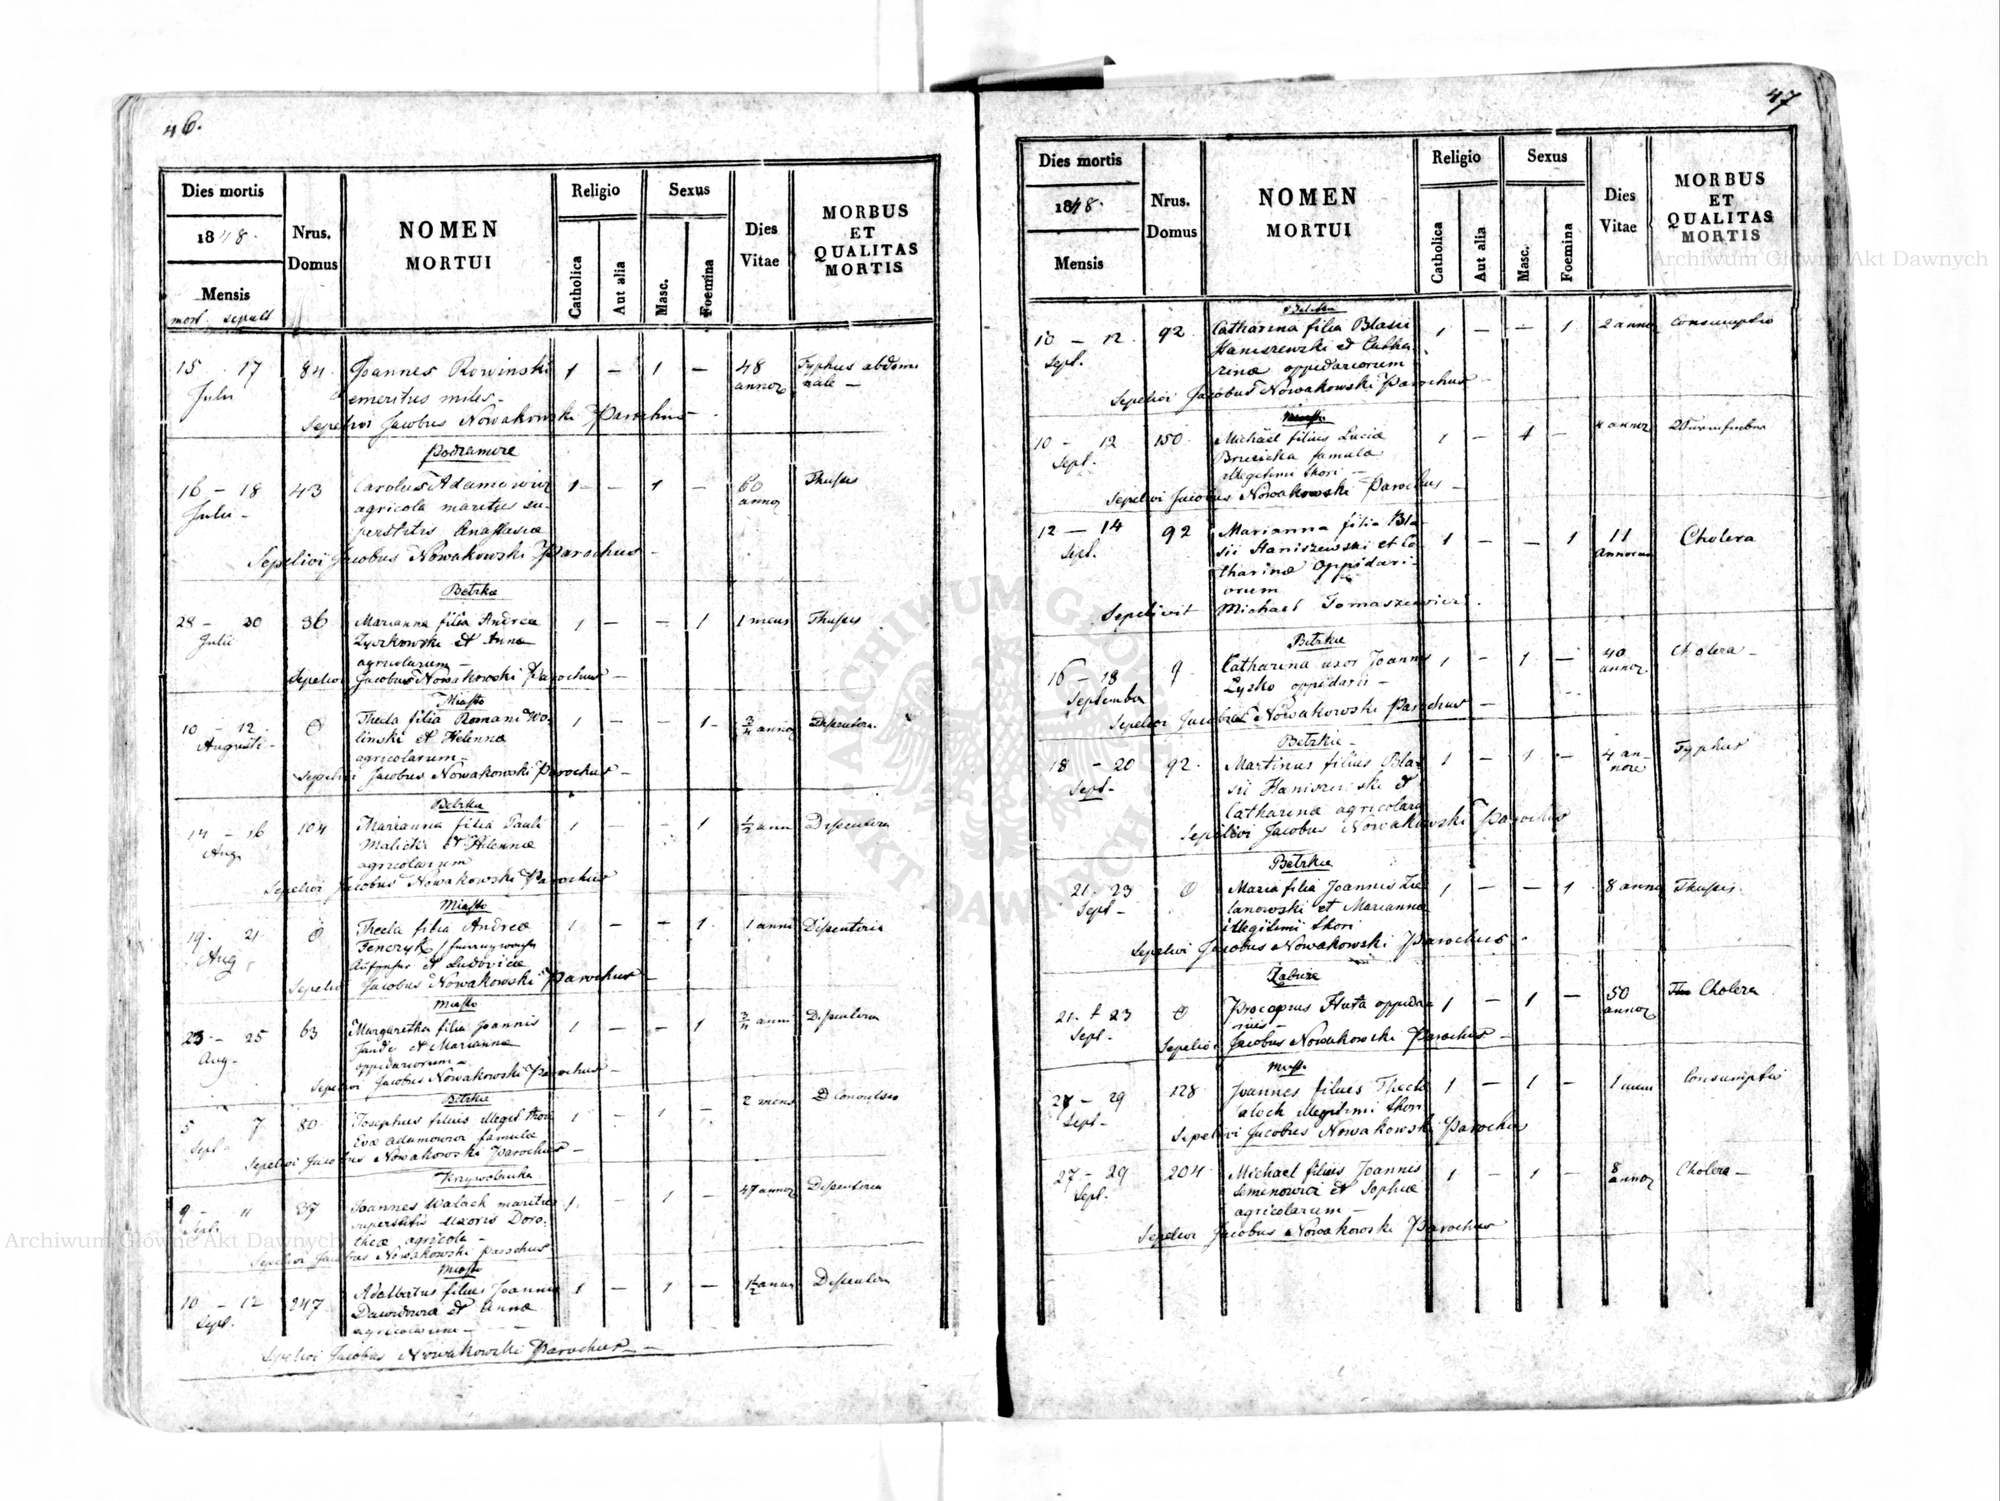 46.
Dies mortis
1848.
Mensis
mort. sepult
Nrus.
Domus
NOMEN
MORTUI
Religio
Catholica
Aut alia
Sexus
Masc.
Foemina
Dies
Vitae
MORBUS
ET
QUALITAS
MORTIS
15 . 17 84. Joannes Rowinski 1 — 1 — 48 Typhus abdomi
Julii emeritus miles — annor nale —
Sepelivi Jacobus Nowakowski Parochus —
Podzamcze
16 — 18 43 Carolus Adamowicz 1 — 1 — 60 Thussis
Julii — agricola maritus su- annor
perstitis Anastasiae
Sepelivi Jacobus Nowakowski Parochus —
Betzkie
28 — 30 36 Marianna filia Andreae 1 — — 1 1 mens Thussis
Julii Zyszkowski et Anna
agricolarum —
Sepelivi Jacobus Nowakowski Parochus —
Miasto
10 — 12 0 Thecla filia Romani Wo- 1 — — 1 3/4 annor Dissenteria
Augusti — linski et Helenna
agricolarum —
Sepelivi Jacobus Nowakowski Parochus —
Betzkie
14 — 16 104 Marianna filia Pauli 1 — — 1 1/2 anni Dissenteria
Aug Malicki et Helennae
agricolarum
Sepelivi Jacobus Nowakowski Parochus
Miasto
19. 21 0 Thecla filia Andreae 1 — — 1 1 anni Dissenteria
Aug Fenczyk
et Ludovicae
Sepelivi Jacobus Nowakowski Parochus —
Miasto
23 — 25 63 Margaretha filia Joannis 1 — — 1 3/4 anni Dissenteria
Aug — et Marianna
oppidariorum —
Sepelivi Jacobus Nowakowski Parochus —
Betzkie
5 7 80 Josephus filius illegit thori 1 — 1 — 2 mens Convulsio
Sept — Eva Adamowicz famula
Sepelivi Jacobus Nowakowski Parochus —
Krzywolanka
9 — 11 37 Joannes Walach maritus 1. — 1 — 47 annor Dissenteria
Sept. superstitis uxoris Doro-
theae agricola —
Sepelivi Jacobus Nowakowski Parochus
Miasto
10 — 12 247 Adalbertus filius Joannis 1 — 1 — 1 1/2 anni Dissenteria
Sept. et Anna
agricolarum —
Sepelivi Jacobus Nowakowski Parochus —
47
Dies mortis
1848.
Mensis
Nrus.
Domus
NOMEN
MORTUI
Religio
Catholica
Aut alia
Sexus
Masc.
Foemina
Dies
Vitae
MORBUS
ET
QUALITAS
MORTIS
Betzkie
10 — 12 92 Catharina filia Blasii 1 — — 1 2 annor Consumptio
Sept. Haniszewski et Catha-
rinae oppidariorum —
Sepelivi Jacobus Nowakowski Parochus —
Miasto
10 — 12 150 Michael filius Lucia 1 — 1 — 4 annor
Sept. famula
illegitimi thori —
Sepelivi Jacobus Nowakowski Parochus —
12 — 14 92 Marianna filia Bla- 1 — — 1 11 Cholera
Sept. sii Haniszewski et Ca- annorum
tharinae oppidari-
orum
Sepelivit Michael Tomaszewicz.
Betzkie
16 — 18 9 Catharina uxor Joannis 1 — 1 — 40 Cholera —
Septembr Zyzko oppidarii — annor.
Sepelivi Jacobus Nowakowski Parochus —
Betzkie —
18 — 20 92. Martinus filius Bla- 1 — 1 — 4 an- Typhus
Sept — sii Haniszewski et nor
Catharinae agricolarum
Sepelivi Jacobus Nowakowski Parochus
Betzkie
21. 23 0 Maria filia Joannis Zie- 1 — — 1 8 anni Thussis.
Sept — lanowski et Marianna
illegitimi thori
Sepelivi Jacobus Nowakowski Parochus —
Zabuze
21. 23 0 Procopius Huta oppida- 1 — 1 — 50 Cholera
Sept — rius — annor
Sepelivi Jacobus Nowakowski Parochus —
Miasto
27 — 29 128 Joannes filius Thecla 1 — 1 — 1 mens Consumptio
Sept — illegitimi thori
Sepelivi Jacobus Nowakowski Parochus
27 — 29 204 Michael filius Joannis 1 — 1 — 8 Cholera —
Sept. Semenowicz et Sophiae annor
agricolarum —
Sepelivi Jacobus Nowakowski Parochus
Archiwum Główne Akt Dawnych
Archiwum Główne Akt Dawnych
ARCHIWUM GŁÓWNE AKT DAWNYCH